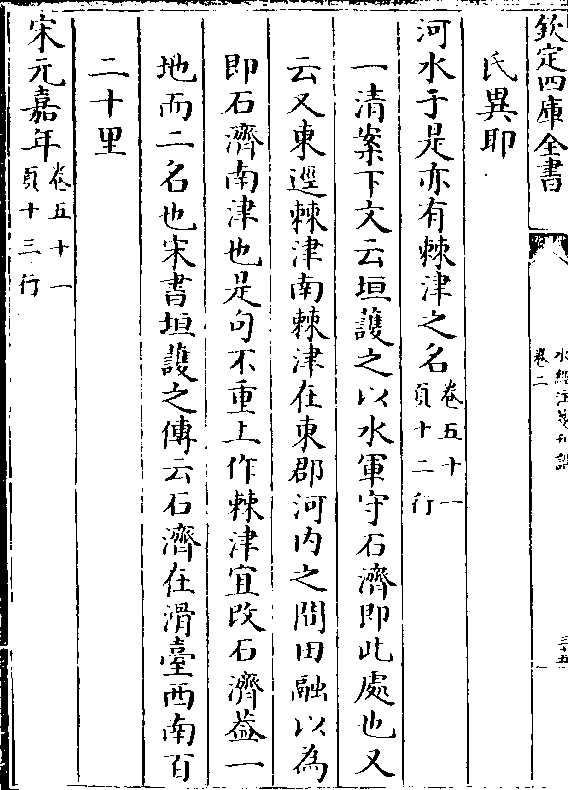 欽定四庫全書
水經注箋刊誤
卷二
三十五
氏異耶
河水于是亦有棘津之名卷五十一頁十二行
一清案下文云垣䕶之以水軍守石濟即此處也又
云又東逕棘津南棘津在東郡河内之間田融以為
即石濟南津也是句不重上作棘津宜改石濟葢一
地而二名也宋書垣䕶之傳云石濟在滑臺西南百
二十里
宋元嘉年卷五十一頁十三行